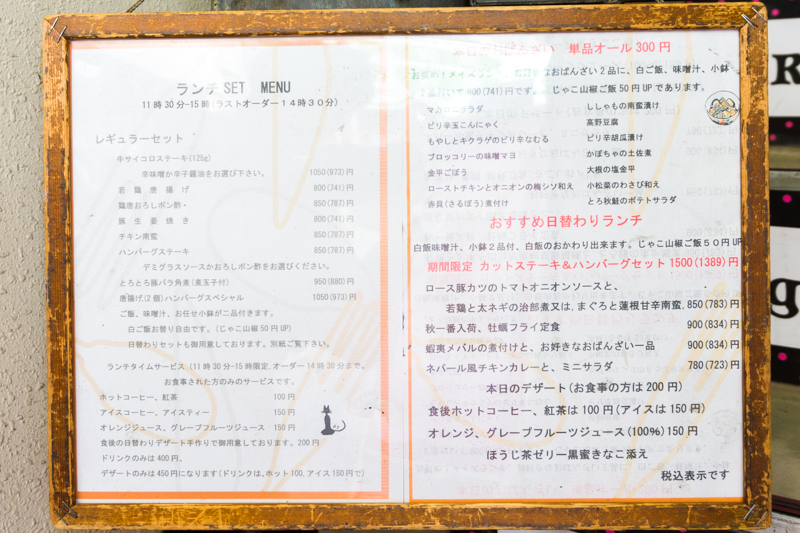 ランチSET MENU
11時30分-15時(ラストオーダー14時30分)
レギュラーセット
牛サイコロステーキ(125g)
辛味噌か辛子醤油をお選び下さい。 1050(973)円
若鶏唐揚げ 800(741)円
鶏唐おろしポン酢・ 850(787)円
豚生姜焼き 800(741)円
チキン南蛮 850(787)円
ハンバーグステーキ 850(787)円
デミグラスソースかおろしポン酢をお選びください。
とろとろ豚バラ角煮(煮玉子付) 950(880)円
唐揚げ(2個)ハンバーグスペシャル 1050(973)円
ご飯、味噌汁、お任せ小鉢が二品付きます。
白ご飯お替り自由です。(じゃこ山椒50円UP)
日替わりセットも御用意しております。別紙ご覧下さい。
ランチタイムサービス(11時30分-15時限定,オーダー14時30分まで。
お食事された方のみのサービスです。
ホットコーヒー、紅茶 100円
アイスコーヒー、アイスティー 150円
オレンジジュース、グレープフルーツジュース 150円
食後の日替わりデザート手作りで御用意しております。200円
ドリンクのみは400円、
デザートのみは450円になります(ドリンクは、ホット100,アイス150円で)
本日のおばんざい 単品オール300円
お好きなおばんざい2品に、白ご飯、味噌汁、小鉢
800(741)円です。 じゃこ山椒ご飯50円UPであります。
マカロニサラダ
ピリ辛玉こんにゃく
もやしとキクラゲのピリ辛なむる
ブロッコリーの味噌マヨ
金平ごぼう
ローストチキンとオニオンの梅シソ和え
赤貝(さるぼう)煮付け
ししゃもの南蛮漬け
高野豆腐
ピリ辛胡瓜漬け
かぼちゃの土佐煮
大根の塩金平
小松菜のわさび和え
とろ秋鮭のポテトサラダ
おすすめ日替わりランチ
白飯味噌汁、小鉢2品付、白飯のおかわり出来ます。じゃこ山椒ご飯50円UP
期間限定 カットステーキ&ハンバーグセット 1500(1389)円
ロース豚カツのトマトオニオンソースと、
若鶏と太ネギの治部煮又は,まぐろと蓮根甘辛南蛮,850(783)円
秋一番入荷、牡蠣フライ定食 900(834)円
蝦夷メバルの煮付けと、お好きなおばんざい一品 900(834)円
ネパール風チキンカレーと、ミニサラダ 780(723)円
本日のデザート(お食事の方は200円)
食後ホットコーヒー、紅茶は100円(アイスは150円)
オレンジ、グレープフルーツジュース(100%)150円
ほうじ茶ゼリー黒蜜きなこ添え
税込表示です